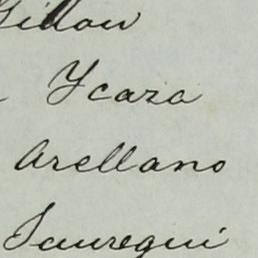 Gillow
Ycaza
Arellano
Jauregui